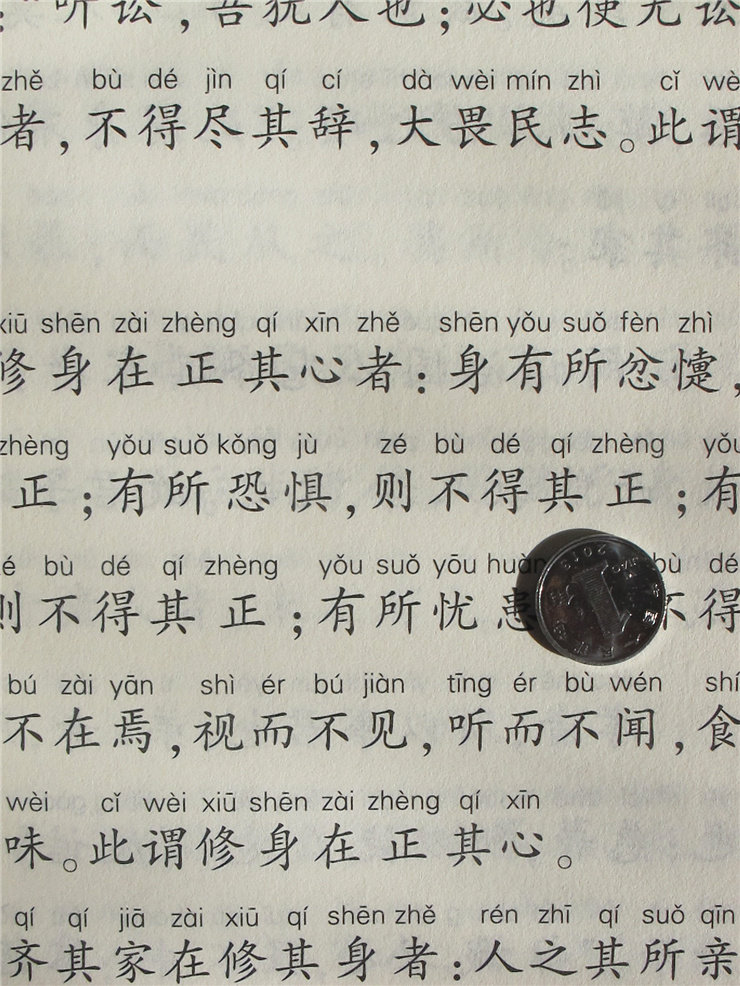 ：“听讼，吾犹人也；必也使无讼
zhě bù dé jìn qí cí dà wèi mín zhì cǐ wè
者，不得尽其辞，大畏民志。此谓
xiū shēn zài zhèng qí xīn zhě shēn yǒu suǒ fèn zhì
修身在正其心者：身有所忿懥，
zhèng yǒu suǒ kǒng jù zé bù dé qí zhèng yǒu
正；有所恐惧，则不得其正；有
é bù dé qí zhèng yǒu suǒ yōu huàn bù dé
则不得其正；有所忧患 不得
bú zài yān shì ér bú jiàn tīng ér bù wén shí
不在焉，视而不见，听而不闻，食
wèi cǐ wèi xiū shēn zài zhèng qí xīn
味。此谓修身在正其心。
qí qí jiā zài xiū qí shēn zhě rén zhī qí suǒ qīn
齐其家在修其身者：人之其所亲